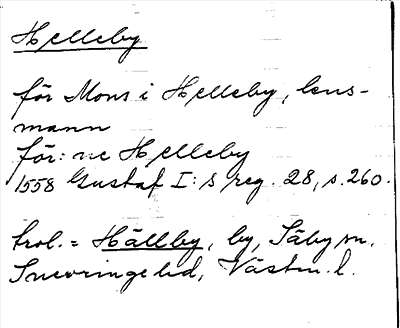 Helleby
för Mons i Helleby, lens-
mann
för: ne Helleby
1558 Gustaf I:s reg. 28, s. 260.
trol. = Hällby, by, Säby sn.
Snevringe hd, Västm. l.